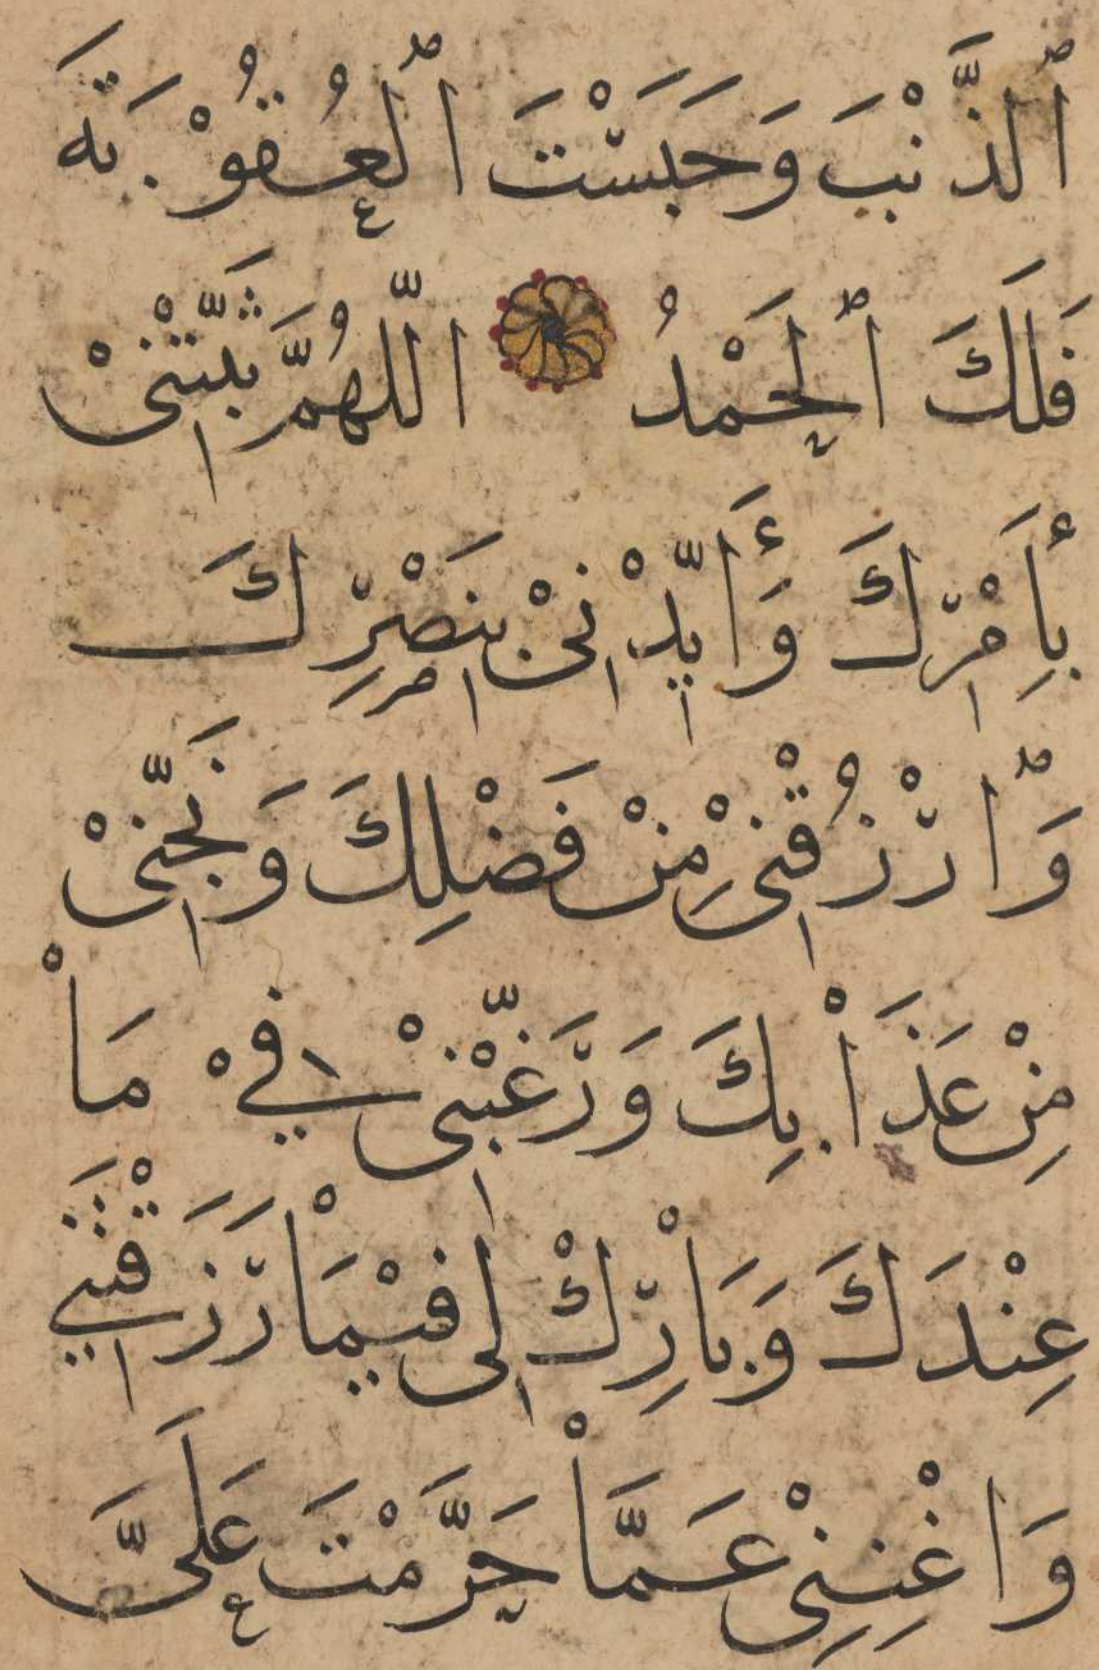 ٱلذَّنْبَ وَحَبَسْتَ ٱلْعُقُوْبَةَ
فَلَكَ ٱلْحَمْدُ اللّٰهُمَّ ثَبِّتْنِيْ
بِأَمْرِكَ وَأَيِّدْنِيْ بِنَصْرِكَ
وَٱرْزُقْنِيْ مِنْ فَضْلِكَ وَنَجِّنِيْ
مِنْ عَذَاْبِكَ وَرَغِّبْنِيْ فِيْ مَاْ
عِنْدَكَ وَبَاْرِكْ لِيْ فِيْمَاْ رَزَقْتَنِيْ
وَاغْنِنِيْ عَمَّاْ حَرَّمْتَ عَلَيَّ